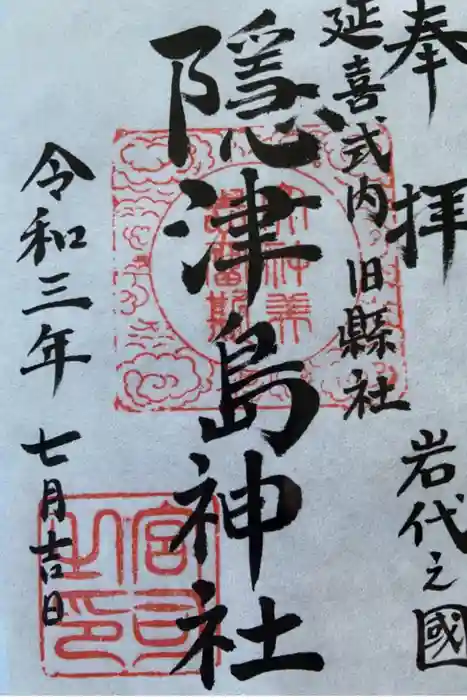 奉拝
岩代之國
延喜式内 旧縣社
隠津島神社
令和三年
七月吉日
宮司之印